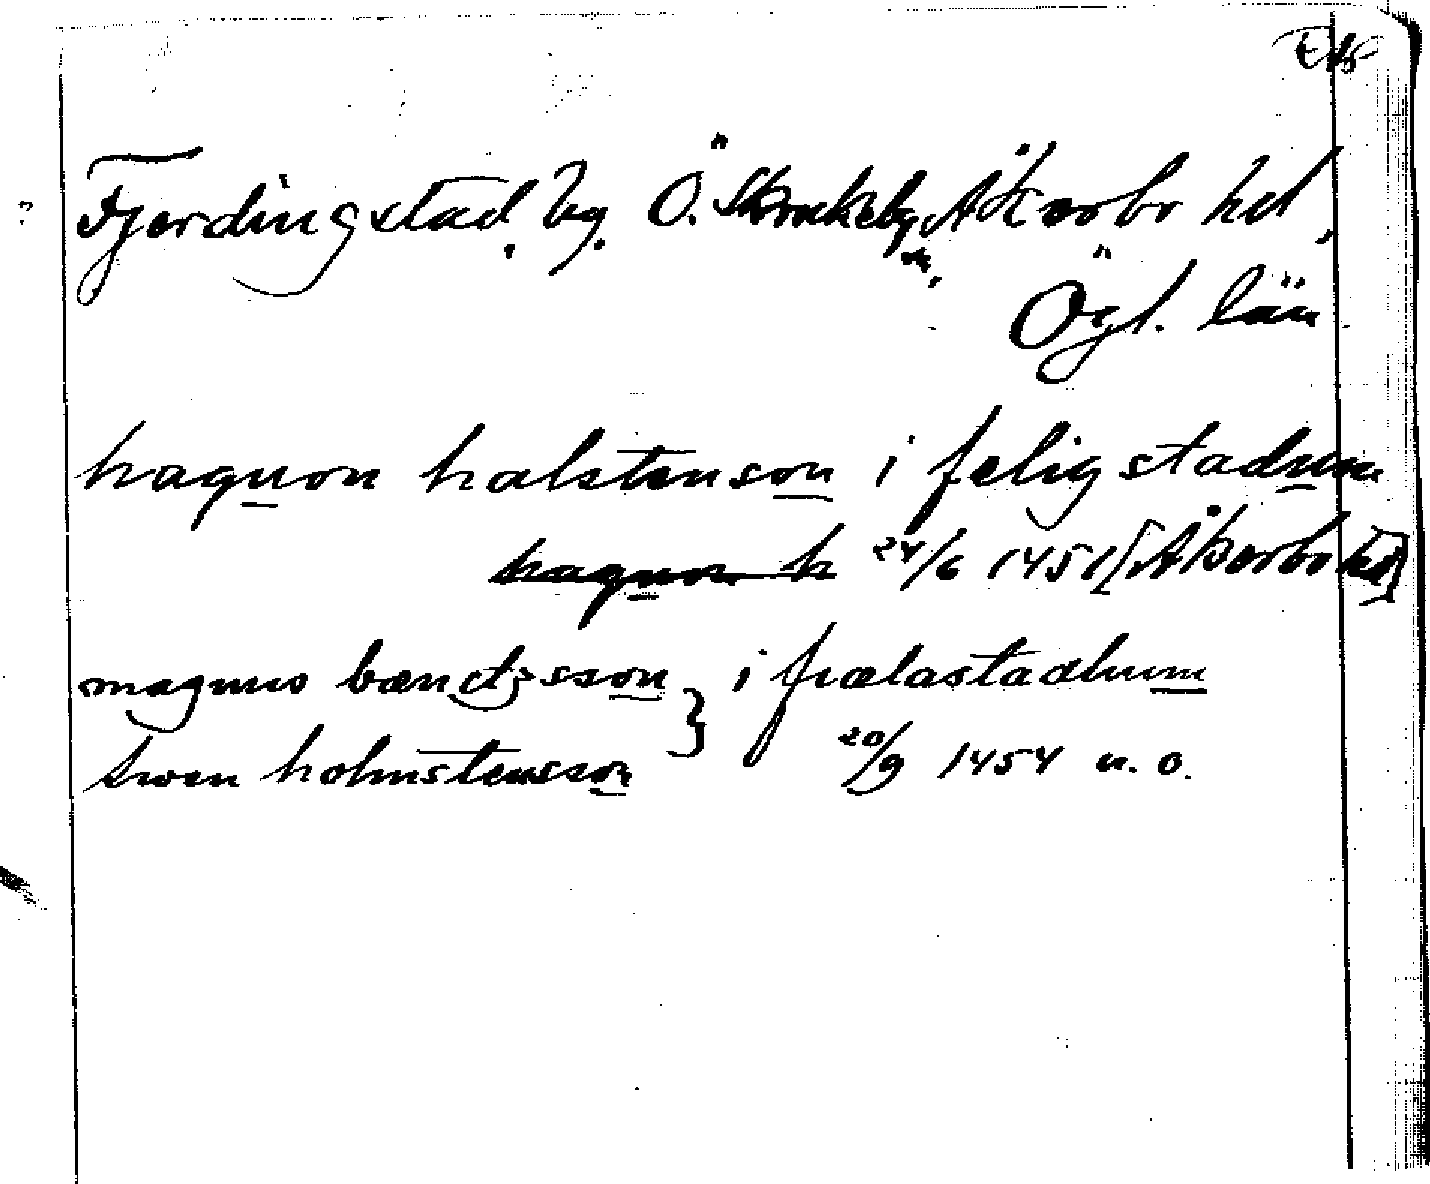 Fjerdingstad, by. Ö. Skrukeby sn, Åkerbo hd,
Ögl. län
haquon halstenson i feligstadum
haquon h 24/6 1451 [Åkerbo hd]
magnus bændzsson } i frælastadhum
swen holmstensson 20/9 1454 u. o.